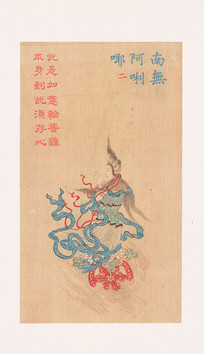 南無
阿唎
哪二
此是如意輪菩薩
本身到此須存心